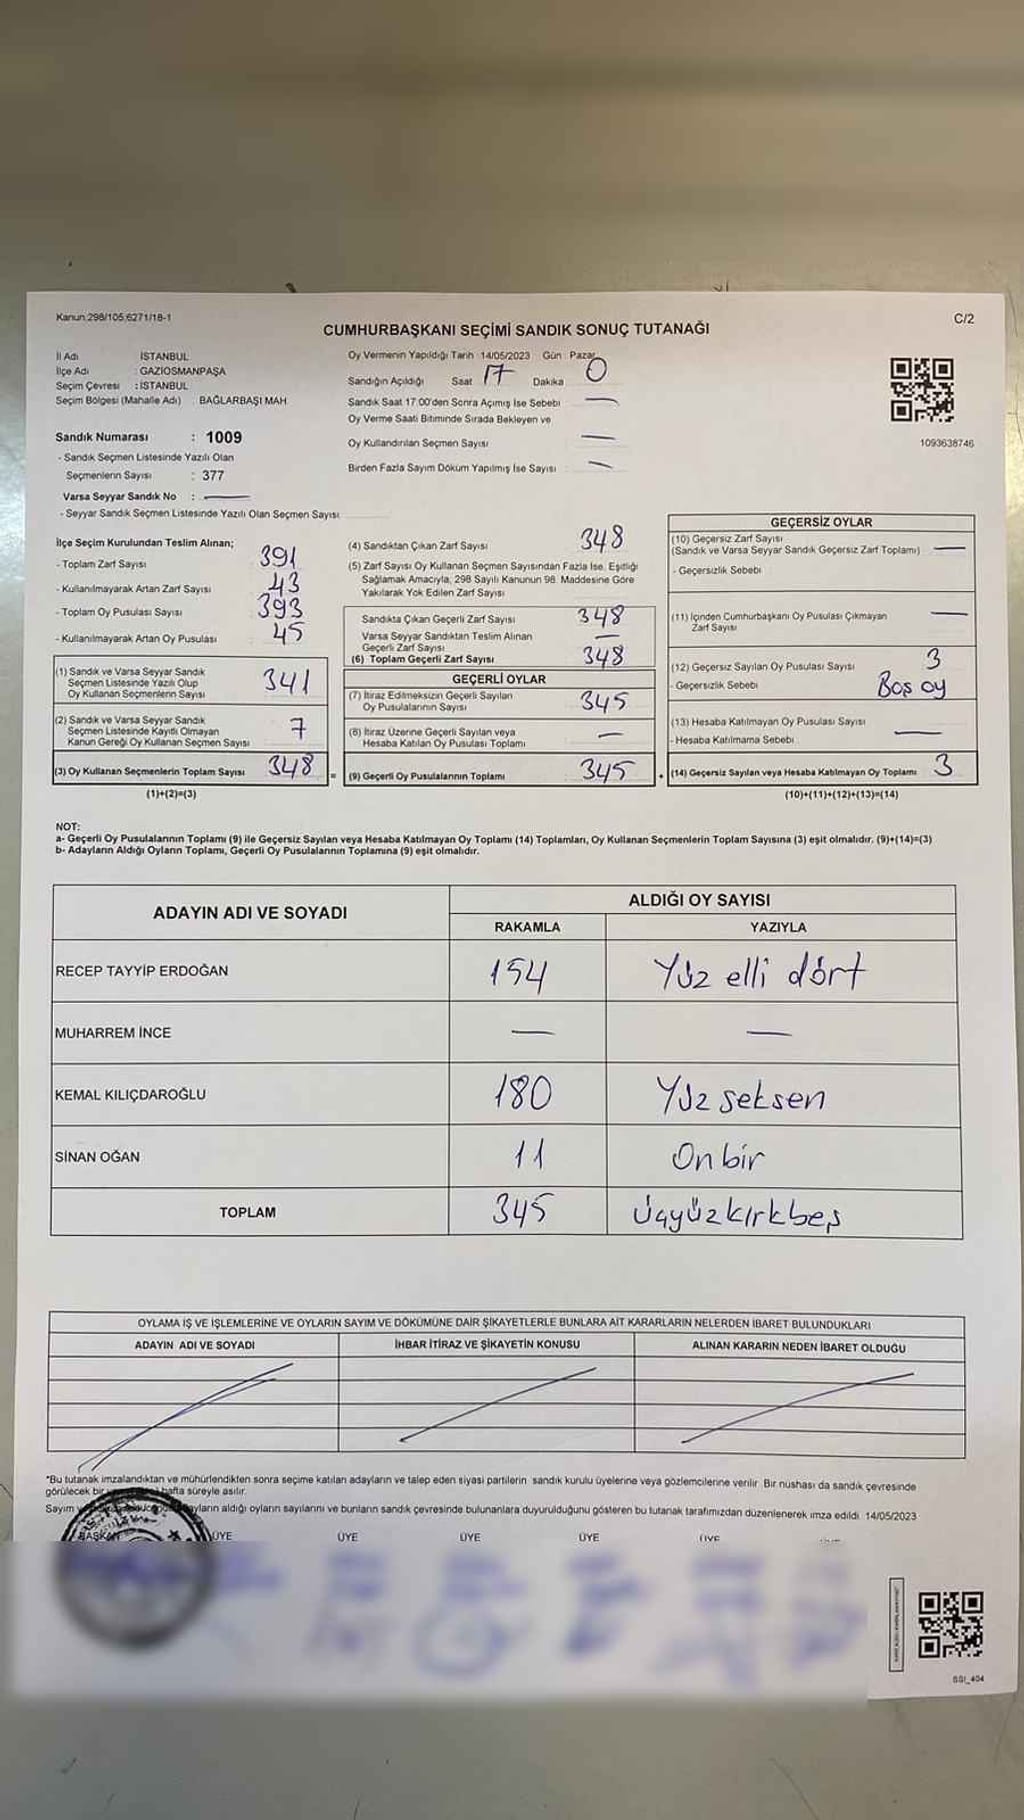 Kanun:298/105,6271/18-1
C/2
CUMHURBAŞKANI SEÇİMİ SANDIK SONUÇ TUTANAĞI
İl Adı İSTANBUL
İlçe Adı : GAZİOSMANPAŞA
Seçim Çevresi : İSTANBUL
Seçim Bölgesi (Mahalle Adı) : BAĞLARBAŞI MAH.
Sandık Numarası : 1009
- Sandık Seçmen Listesinde Yazılı Olan
Seçmenlerin Sayısı : 377
Varsa Seyyar Sandık No : —
- Seyyar Sandık Seçmen Listesinde Yazılı Olan Seçmen Sayısı
Oy Vermenin Yapıldığı Tarih 14/05/2023 Gün : Pazar
Sandığın Açıldığı Saat 17 Dakika 0
Sandık Saat 17:00'den Sonra Açımış İse Sebebi —
Oy Verme Saati Bitiminde Sırada Bekleyen ve
Oy Kullandırılan Seçmen Sayısı —
Birden Fazla Sayım Döküm Yapılmış İse Sayısı —
1093638746
İlçe Seçim Kurulundan Teslim Alınan;
- Toplam Zarf Sayısı 391
- Kullanılmayarak Artan Zarf Sayısı 43
- Toplam Oy Pusulası Sayısı 393
- Kullanılmayarak Artan Oy Pusulası 45
(1) Sandık ve Varsa Seyyar Sandık
Seçmen Listesinde Yazılı Olup
Oy Kullanan Seçmenlerin Sayısı 341
(2) Sandık ve Varsa Seyyar Sandık
Seçmen Listesinde Kayıtlı Olmayan
Kanun Gereği Oy Kullanan Seçmen Sayısı 7
(3) Oy Kullanan Seçmenlerin Toplam Sayısı 348 =
(1)+(2)=(3)
(4) Sandıktan Çıkan Zarf Sayısı 348
(5) Zarf Sayısı Oy Kullanan Seçmen Sayısından Fazla İse, Eşitliği
Sağlamak Amacıyla, 298 Sayılı Kanunun 98. Maddesine Göre
Yakılarak Yok Edilen Zarf Sayısı
Sandıkta Çıkan Geçerli Zarf Sayısı 348
Varsa Seyyar Sandıktan Teslim Alınan
Geçerli Zarf Sayısı —
(6) Toplam Geçerli Zarf Sayısı 348
GEÇERLİ OYLAR
(7) İtiraz Edilmeksizin Geçerli Sayılan
Oy Pusulalarının Sayısı 345
(8) İtiraz Üzerine Geçerli Sayılan veya
Hesaba Katılan Oy Pusulası Toplamı —
(9) Geçerli Oy Pusulalarının Toplamı 345 +
GEÇERSİZ OYLAR
(10) Geçersiz Zarf Sayısı
(Sandık ve Varsa Seyyar Sandık Geçersiz Zarf Toplamı) —
- Geçersizlik Sebebi
(11) İçinden Cumhurbaşkanı Oy Pusulası Çıkmayan
Zarf Sayısı —
(12) Geçersiz Sayılan Oy Pusulası Sayısı 3
- Geçersizlik Sebebi Boş oy
(13) Hesaba Katılmayan Oy Pusulası Sayısı —
- Hesaba Katılmama Sebebi
(14) Geçersiz Sayılan veya Hesaba Katılmayan Oy Toplamı 3
(10)+(11)+(12)+(13)=(14)
NOT:
a- Geçerli Oy Pusulalarının Toplamı (9) ile Geçersiz Sayılan veya Hesaba Katılmayan Oy Toplamı (14) Toplamları, Oy Kullanan Seçmenlerin Toplam Sayısına (3) eşit olmalıdır. (9)+(14)=(3)
b- Adayların Aldığı Oyların Toplamı, Geçerli Oy Pusulalarının Toplamına (9) eşit olmalıdır.
ADAYIN ADI VE SOYADI
ALDIĞI OY SAYISI
RAKAMLA YAZIYLA
RECEP TAYYİP ERDOĞAN 154 Yüz elli dört
MUHARREM İNCE — —
KEMAL KILIÇDAROĞLU 180 Yüz seksen
SİNAN OĞAN 11 On bir
TOPLAM 345 Üçyüzkırkbeş
OYLAMA İŞ VE İŞLEMLERİNE VE OYLARIN SAYIM VE DÖKÜMÜNE DAİR ŞİKAYETLERLE BUNLARA AİT KARARLARIN NELERDEN İBARET BULUNDUKLARI
ADAYIN ADI VE SOYADI İHBAR İTİRAZ VE ŞİKAYETİN KONUSU ALINAN KARARIN NEDEN İBARET OLDUĞU
*Bu tutanak imzalandıktan ve mühürlendikten sonra seçime katılan adayların ve talep eden siyasi partilerin sandık kurulu üyelerine veya gözlemcilerine verilir. Bir nüshası da sandık çevresinde
görülecek bir hafta süreyle asılır.
Sayım aldığı oyların sayılarını ve bunların sandık çevresinde bulunanlara duyurulduğunu gösteren bu tutanak tarafımızdan düzenlenerek imza edildi. 14/05/2023
BAŞKAN ÜYE ÜYE ÜYE ÜYE ÜYE
SSI_404